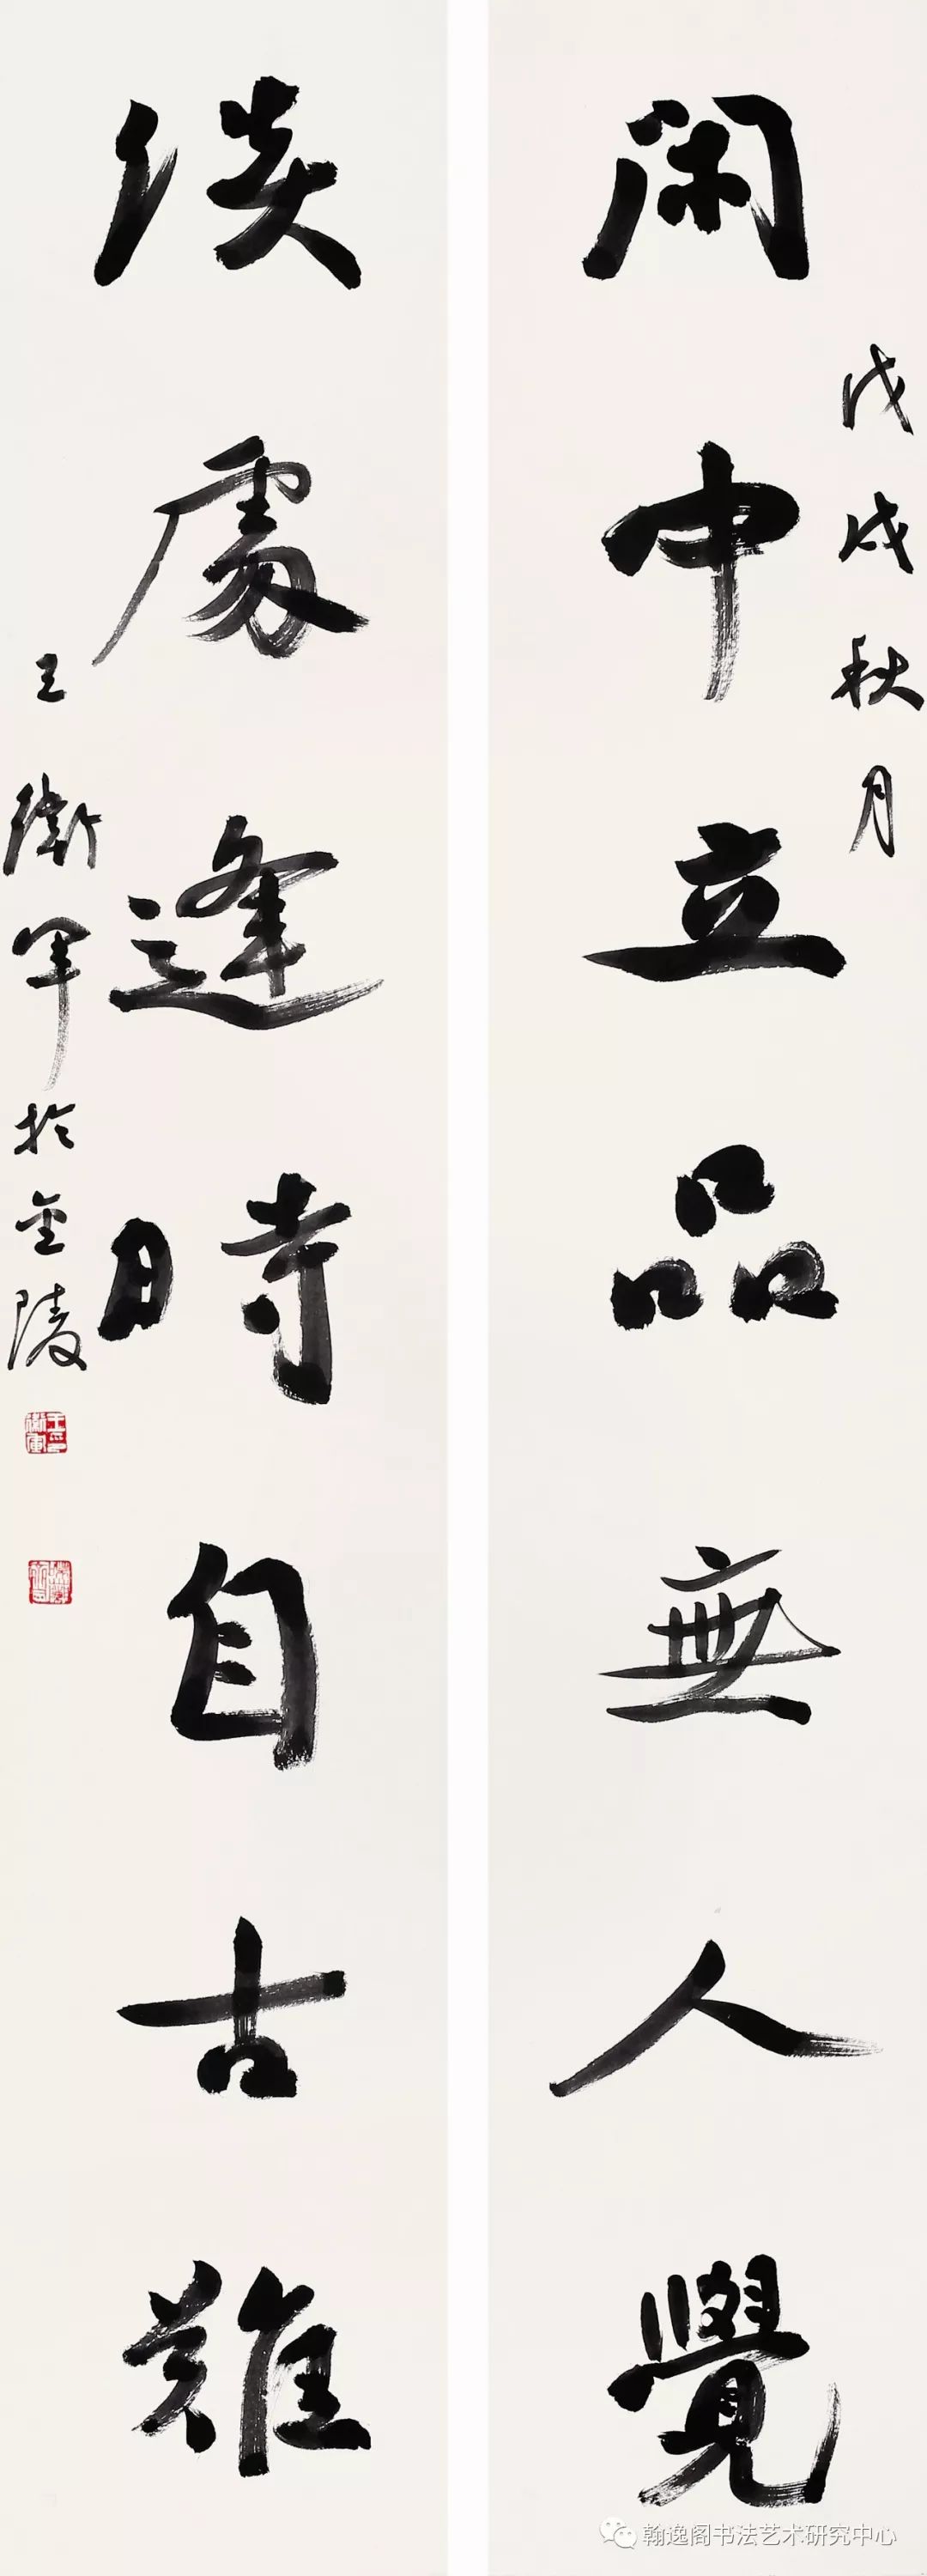 戊戌秋月
閑中立品無人覺
淡處逢時自古難
王衛軍於金陵
翰逸阁书法艺术研究中心